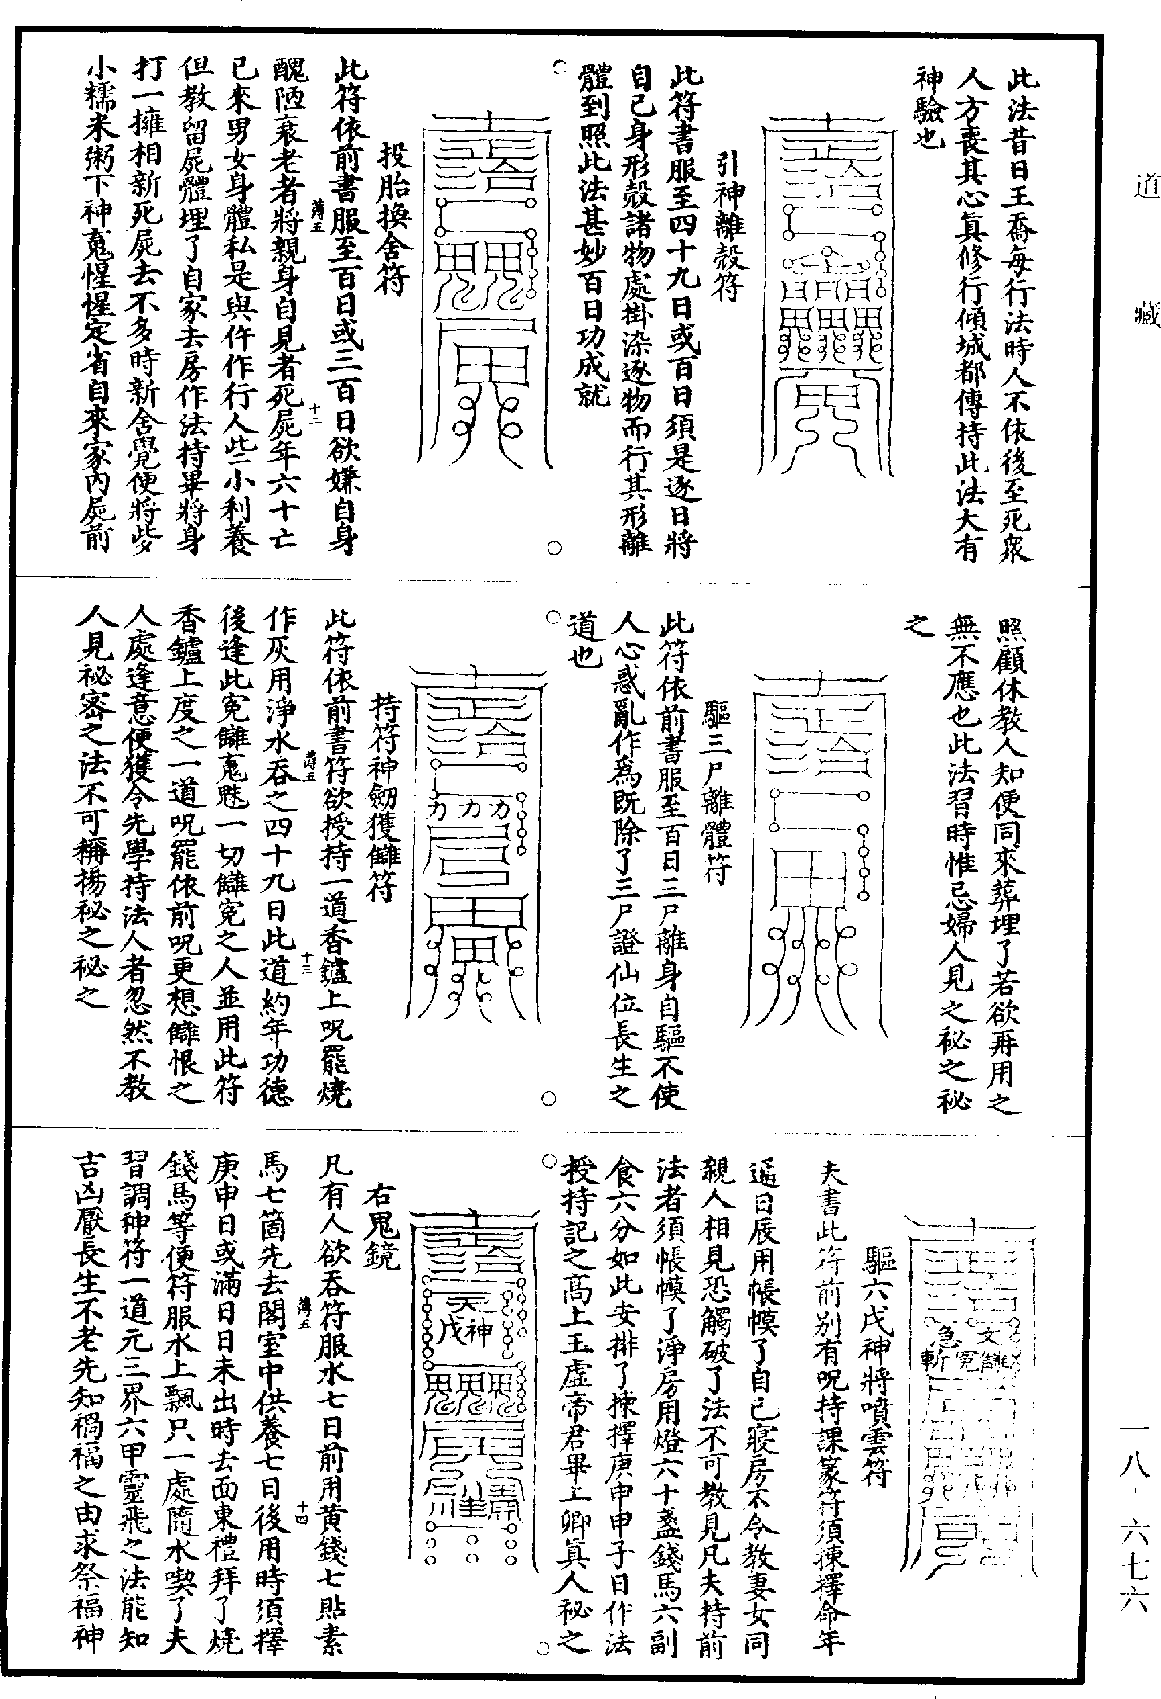 道藏
一八·六七六
此法昔日王喬每行法時人不依後至死衆
人方喪其心眞修行傾城都傳持此法大有
神驗也
引神離殼符
此符書服至四十九日或百日須是逐日將
自己身形殼諸物處掛染逐物而行其形離
體到照此法甚妙百日功成就
投胎換舍符
此符依前書服至百日或三百日欲嫌自身
醜陋衰老者將親身自見者死屍年六十亡
薄五
十二
已來男女身體私是與仵作行人些小利養
但教留屍體埋了自家去房作法持畢將身
打一擁相新死屍去不多時新舍覺便將些
小糯米粥下神䰟惺惺定省自來家內屍前
照顧休教人知便同來葬埋了若欲再用之
無不應也此法習時惟忌婦人見之祕之祕
之
驅三尸離體符
此符依前書服至百日三尸離身自驅不使
人心惑亂作爲既除了三尸證仙位長生之
道也
力力力
持符神劒獲讎符
此符依前書符欲授持一道香鑪上呪罷燒
作灰用淨水吞之四十九日此道約年功德
薄五
十三
後逢此寃讎䰟魅一切讎寃之人並用此符
香鑪上度之一道呪罷依前呪更想讎恨之
人處逢意便獲令先學持法人者忽然不教
人見祕密之法不可稱揚祕之祕之
驅六戌神將噴雲符
夫書此符前别有呪持課篆符須揀擇命年
逼日辰用帳幙了自己寢房不令教妻女同
親人相見恐觸破了法不可教見凡夫持前
法者須帳幙了淨房用燈六十盞錢馬六副
食六分如此安排了揀擇庚申甲子日作法
授持記之高上玉虛帝君畢上卿眞人祕之
天神戊
右䰟鏡
凡有人欲吞符服水七日前用黄錢七貼素
馬七箇先去閣室中供養七日後用時須擇
薄五
十四
庚申日或滿日日未出時去面東禮拜了燒
錢馬等便符服水上飄只一處隨水喫了夫
習調神符一道元三界六甲靈飛之法能知
吉凶厭長生不老先知禍福之由求祭福神